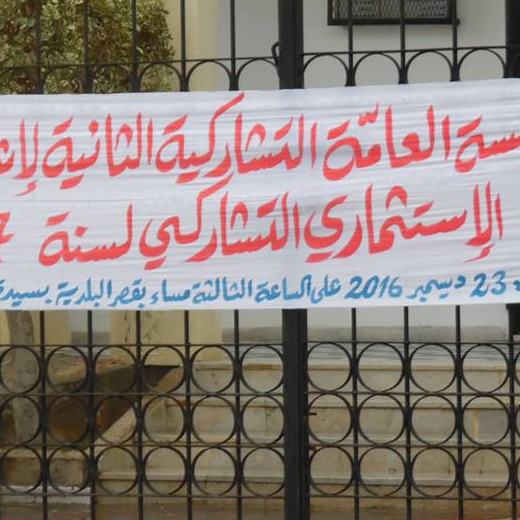 العامّة التشاركية الثانية
الإستثماري التشاركي لسنة
23 ديسمبر 2016 على الساعة الثالثة مساء بقصر البلدية